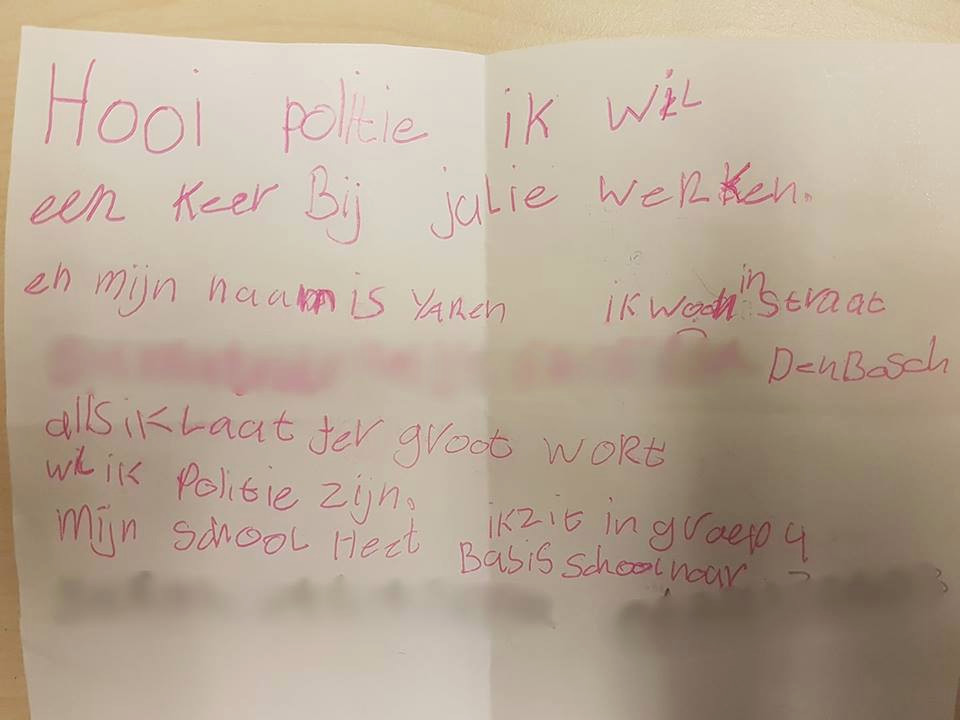 Hooi politie ik wil
een keer Bij julie werken.
en mijn naam is YAREN ik woon in straat
Den Bosch
alls ik Laat ter groot wort
wil ik Politie zijn.
ik zit in groep 4
Mijn school Heet Basis school